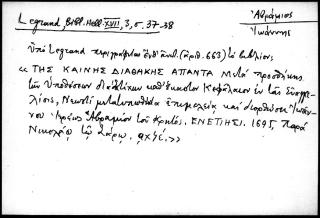 Legrand, Bibl. Hell. XVII, 3, σ. 37-38
Ἀβράμιος
Ἰωάννης
Ὑπὸ Legrand περιγράφεται ὑπ' ἀριθ. (ἀριθ. 663) τὸ βιβλίον:
« ΤΗΣ ΚΑΙΝΗΣ ΔΙΑΘΗΚΗΣ ΑΠΑΝΤΑ Μετὰ προσθήκης
τῶν Ὑποθέσεων διὰ στίχων καθ' ἕκαστον Κεφάλαιον ἐν τοῖς Εὐαγγε-
λίοις, Νεωστὶ μετατυπωθεῖσα ἐπιμελείᾳ καὶ διορθώσει Ἰωάν-
νου Ἱερέως Ἀβραμίου τοῦ Κρητός. ΕΝΕΤΙΗΣΙ. 1695, Παρὰ
Νικολάῳ τῷ Σάρῳ. ͵αχϟέ. »